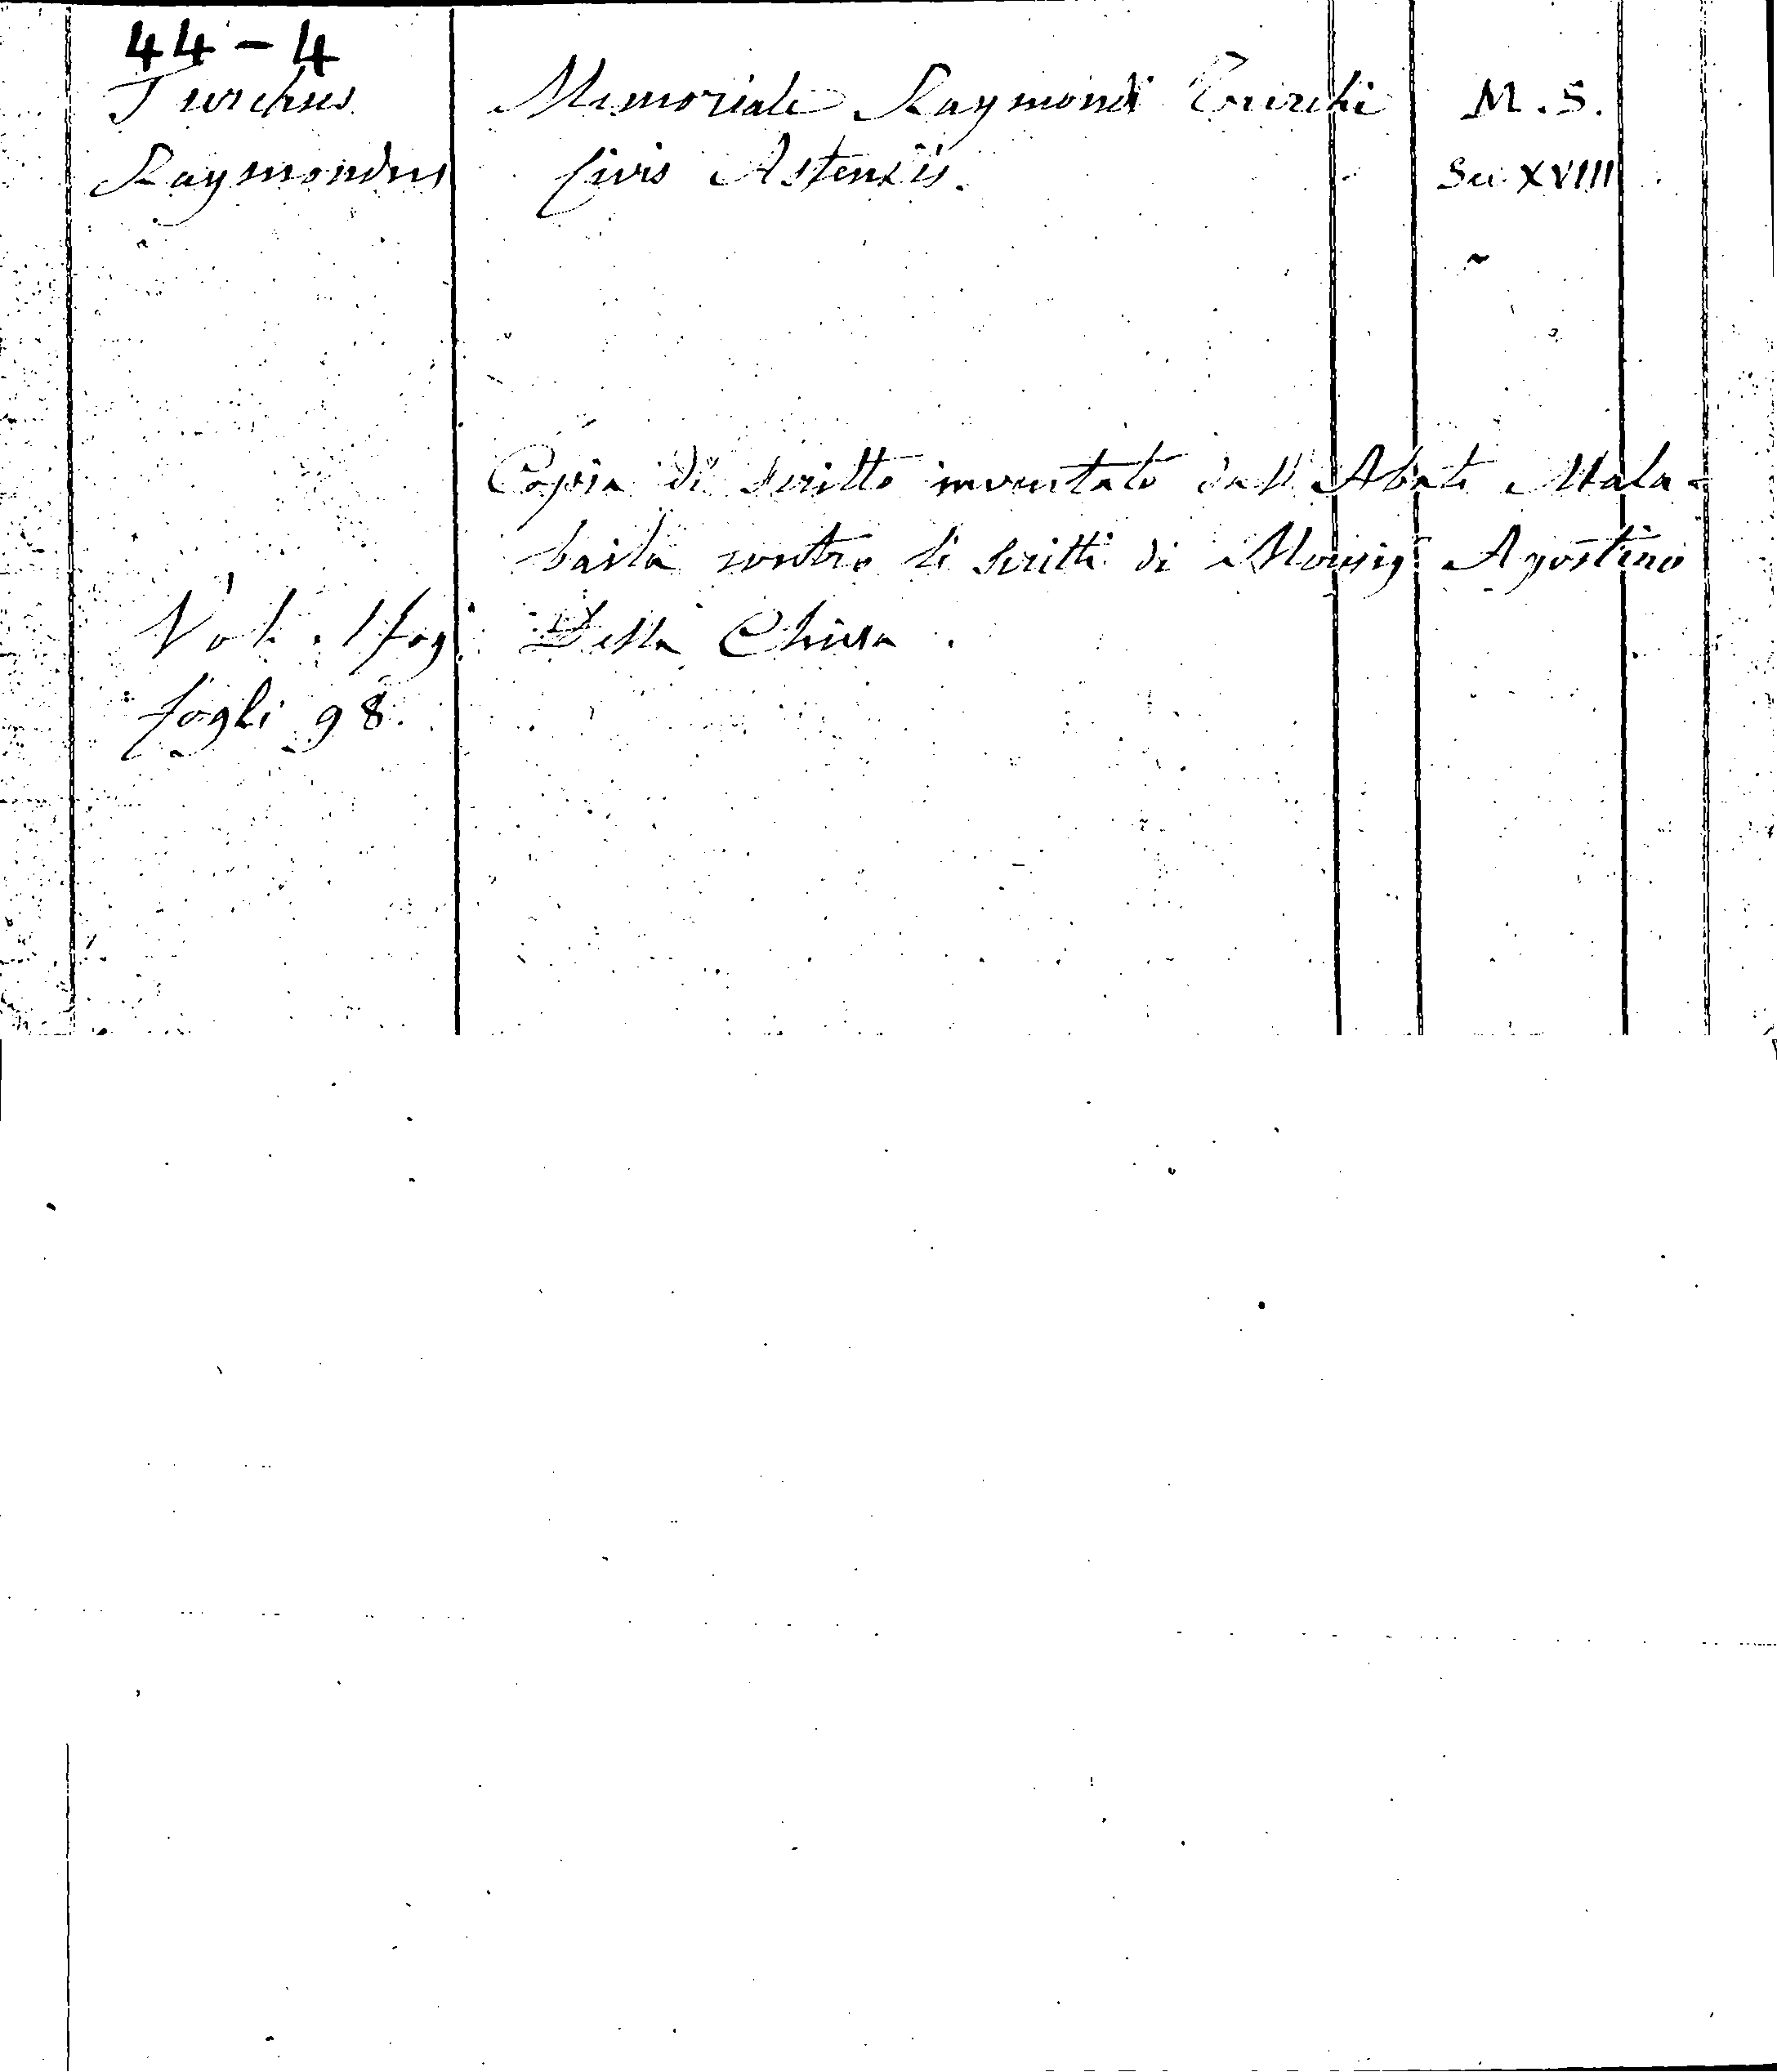 44-4
Turchus
Raymondus
Memoriale Raymondi Turchi
Civis Astensis.
M.S.
Sec. XVIII
Copia di scritto inventato dall'Abate Mala-
baila contro li scritti di Monsig. Agostino
Della Chiesa.
Vol. 1 fog.
fogli 98.